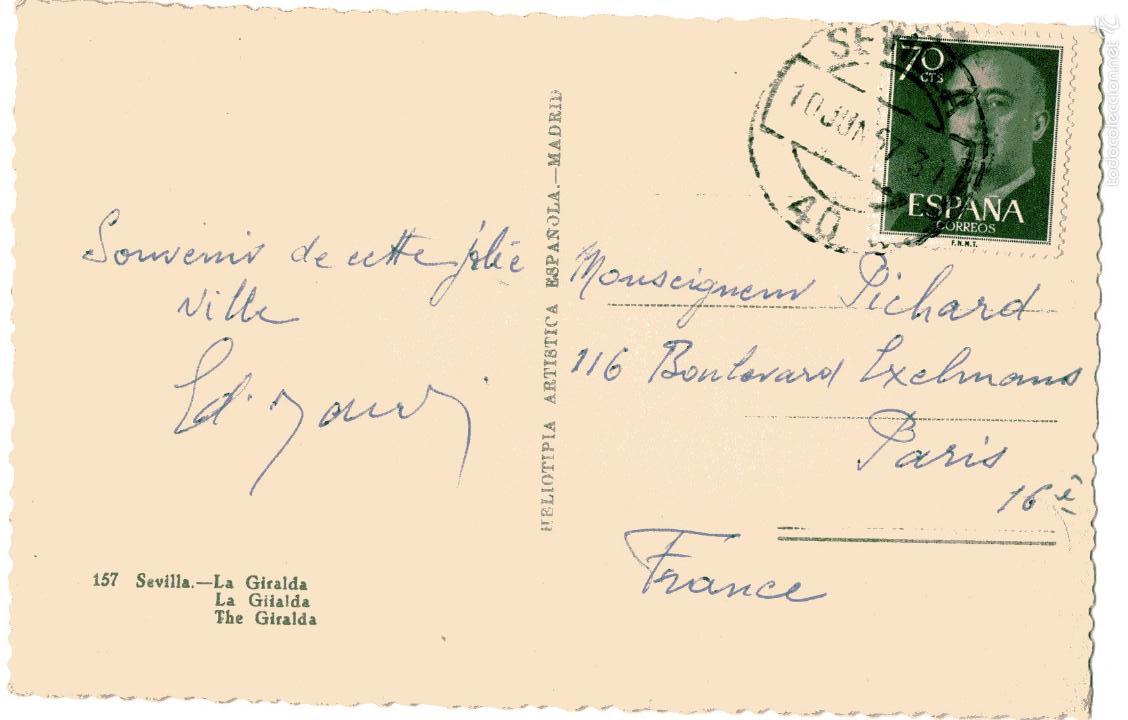 Souvenir de cette jolie
Ville
Ed.
157 Sevilla.—La Giralda
La Giialda
The Giralda
HELIOTIPIA ARTISTICA ESPAÑOLA.—MADRID
SEVILLA
10 JUN 57
40
70
CTS
ESPAÑA
CORREOS
F.N.M.T.
Monseigneur Pichard
116 Boulevard Exelmans
Paris
16è
France
todocoleccion.net